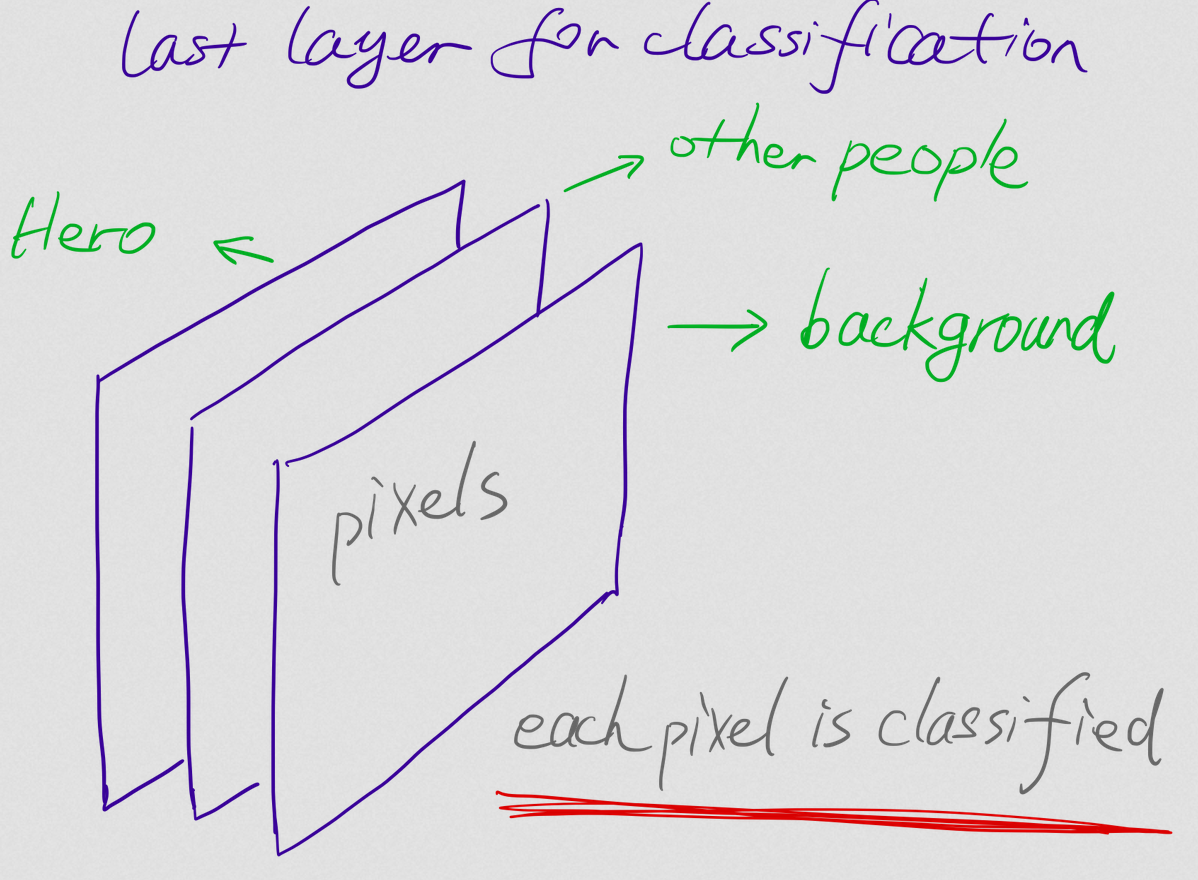 last layer for classification
other people
Hero
background
pixels
each pixel is classified